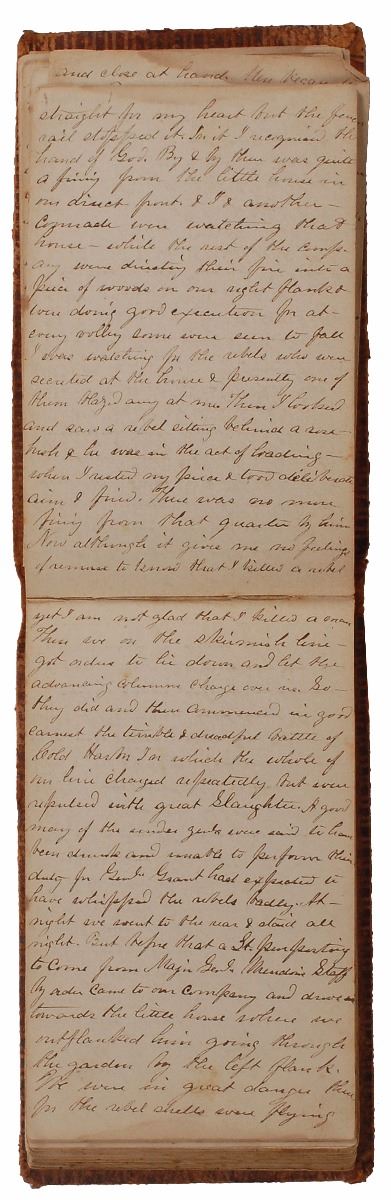 and close at hand. 
straight for my heart but the fence
rail stopped it. In it I recognised the
hand of God. By & by there was quite
a firing from the little house in
our direct front. & I & another
comrade were watching that
house - while the rest of the comp-
any were directing their fire into a
piece of woods on our right flank &
were doing good execution for at
every volley some were seen to fall
I was watching for the rebels who were
secreted at the house & presently one of
them blazed away at me. Then I looked
and saw a rebel sitting behind a rose-
bush & he was in the act of loading -
when I rested my piece & took deliberate
aim & fired. There was no more
firing from that quarter by him
Now although it gives me no feelings
of remorse to know that I killed a rebel
yet I am not glad that I killed a man
Then we on the skirmish line -
got orders to lie down and let the
advancing columns charge over us. So -
they did and then commenced in good
earnest the terrible & dreadful battle of
Cold Harbor In which the whole of
our line charged repeatedly but were
repulsed with great Slaughter. A good
many of the under genls were said to have
been drunk and unable to perform their
duty for Genl. Grant had expected to
have whipped the rebels badly. At-
night we went to the rear & staid all
night. But before that a Lt. purporting
to come from Major Genl. Staff
by order came to our company and drove us
towards the little house where we
outflanked him going through
the garden by the left flank.
We were in great danger then
for the rebel shells were flying